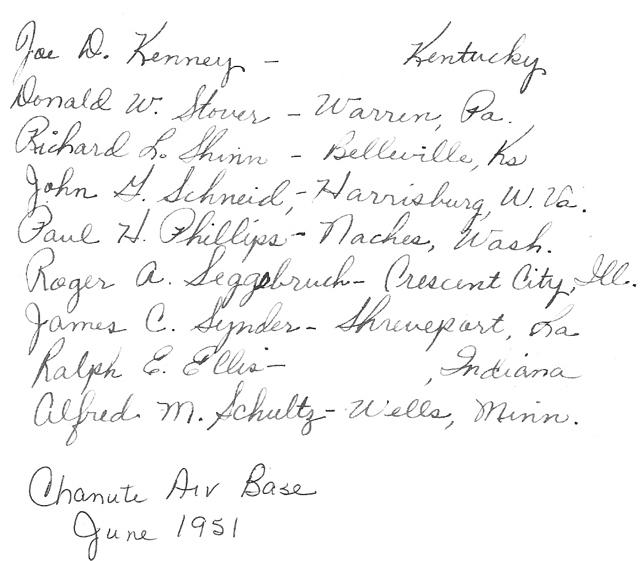 Joe D. Kenney - Kentucky
Donald W. Stover - Warren, Pa.
Richard L. Shinn - Belleville, Ks
John G. Schneid, - Harrisburg, W. Va.
Paul H. Phillips - Naches, Wash.
Roger A. Seggebruch - Crescent City, Ill.
James C. Synder - Shreveport, La
Ralph E. Ellis - , Indiana
Alfred M. Schultz - Wells, Minn.
Chanute Air Base
June 1951